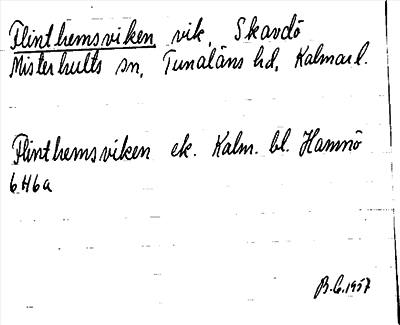 Flinthemsviken vik, Skavdö
Misterhults sn, Tunaläns hd, Kalmar l.
Flinthemsviken ek. Kalm. bl. Hamnö
6H6a
B.G.1957